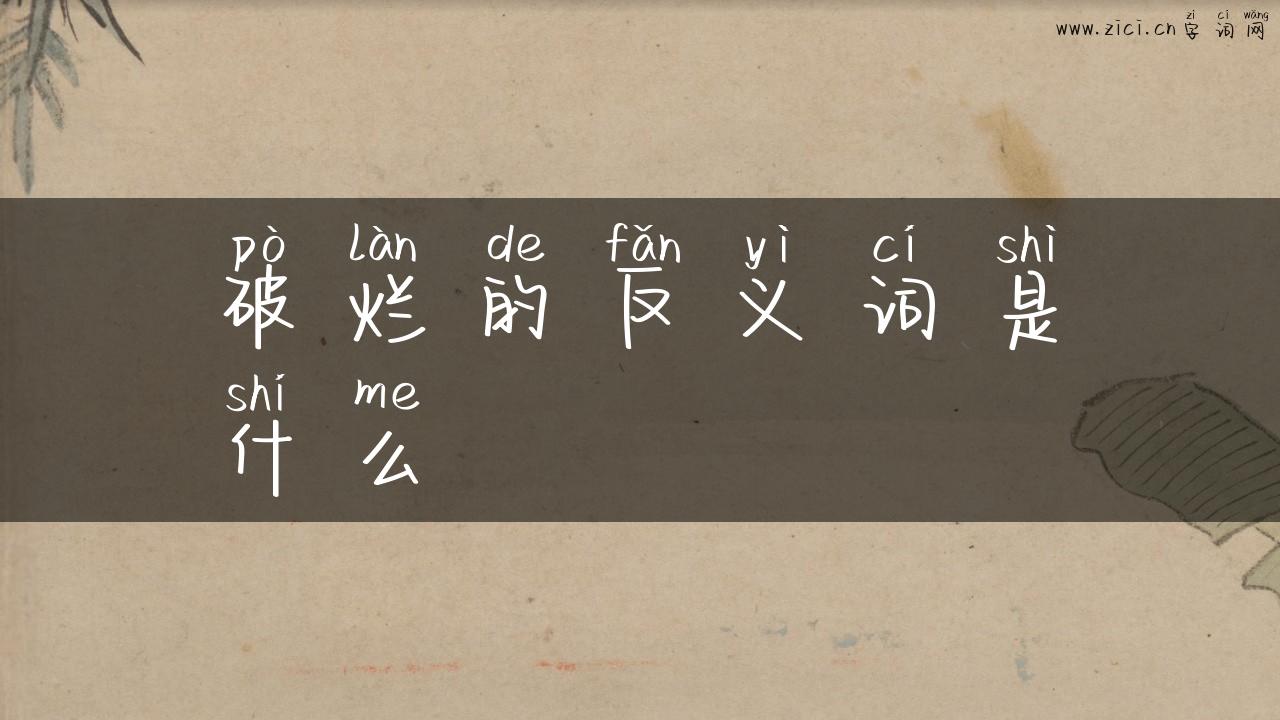 zì cí wǎng
www.zici.cn 字词网
pò làn de fǎn yì cí shì
破烂的反义词是
shí me
什么